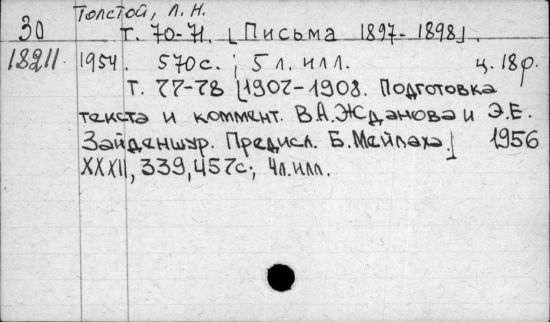 Толстой, Л. Н.
30 т. 70-71. [Письма 1897-1898].
18211. 1954. 570с.; 5 л. илл. ц. 18р.
Т. 77-78 [1907-1908. Подготовка
текста и коммент. В.А.Жданова и Э.Е.
Зайденшур. Предисл. Б.Мейлаха.] 1956
XXXII, 339, 457с.; 4л.илл.